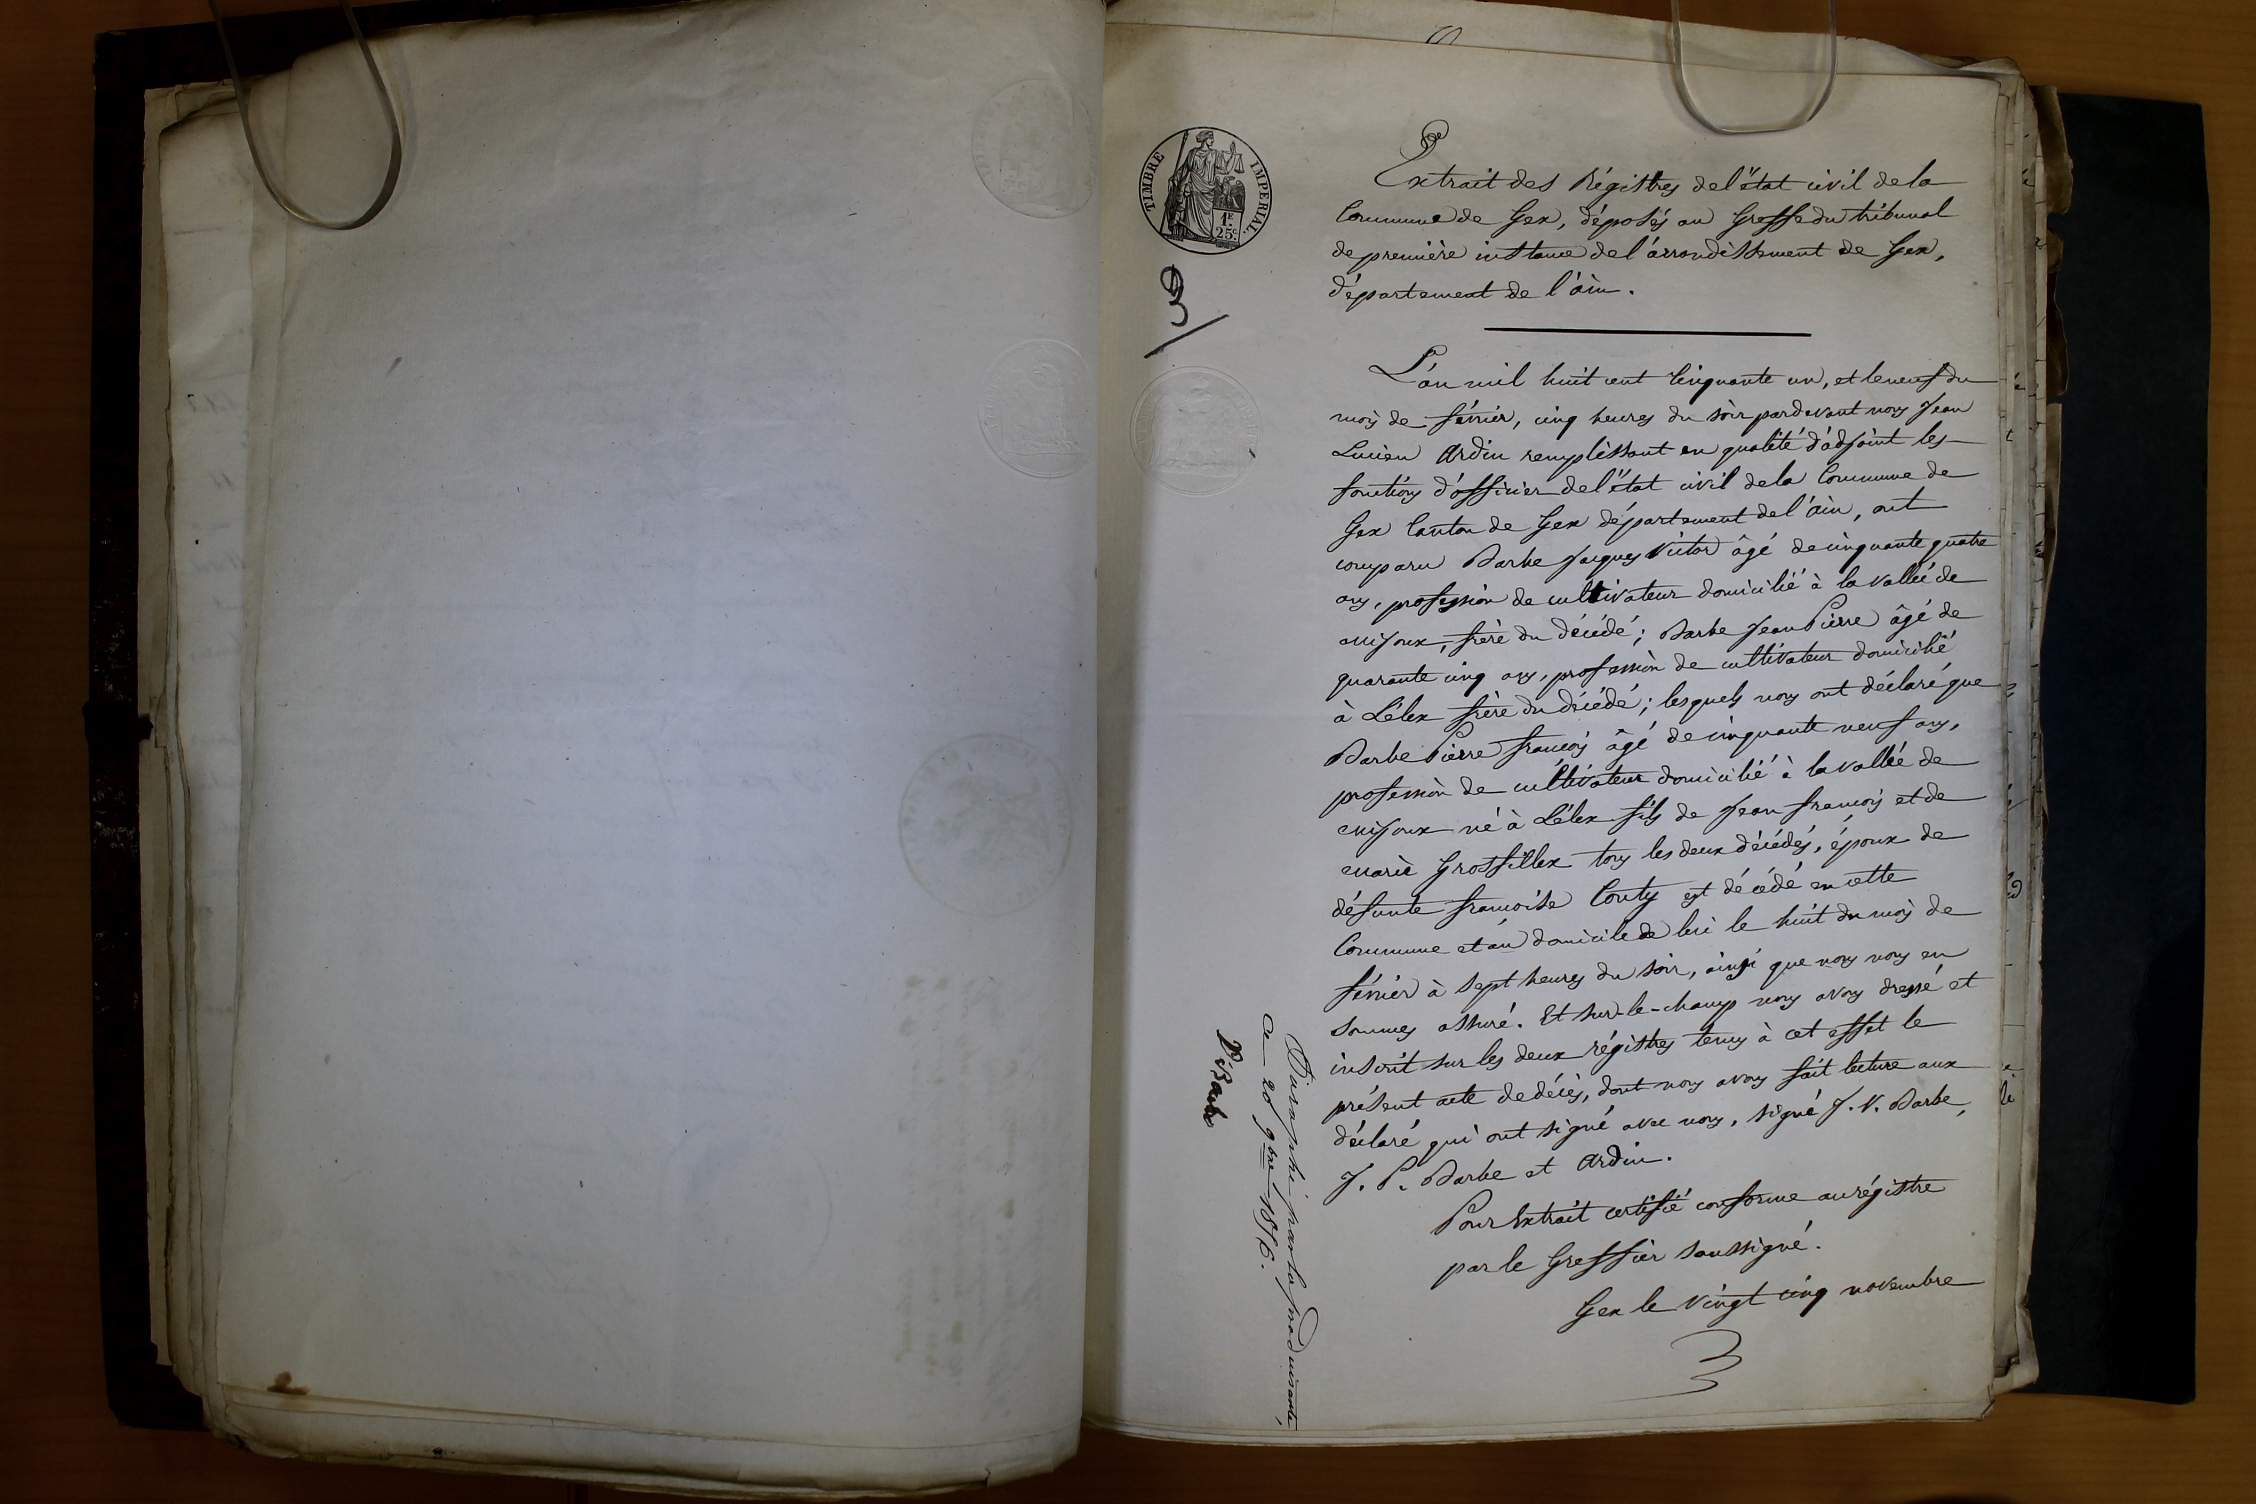 TIMBRE IMPERIAL.
1F.
25c.
Extrait des Régistres de l'état civil de la
Commune de Gex, déposés au Greffe du tribunal
de première instance de l'arrondissement de Gex,
département de l'ain.
L'an mil huit cent cinquante un, et le neuf du
mois de février, cinq heures du soir pardevant nous Jean
Lucien Ardin remplissant en qualité d'adjoint les
fonctions d'officier de l'état civil de la Commune de
Gex Canton de Gex département de l'ain, ont
comparu Barbe Jacques Victor âgé de cinquante quatre
ans, profession de cultivateur domicilié à la vallée de
mijoux, frère du décédé; Barbe Jean Pierre âgé de
quarante cinq ans, profession de cultivateur domicilié
à Lélex frère du décédé; lesquels nous ont déclaré que
Barbe Pierre françois âgé de cinquante neuf ans,
profession de cultivateur domicilié à la vallée de
mijoux né à Lélex fils de Jean françois et de
marie Grosfillex tous les deux décédés, époux de
défunte francoise Couty est décédé en cette
Commune et au domicile de lui le huit du mois de
février à sept heures du soir, ainsi que nous nous en
sommes assuré. Et sur-le-champ nous avons dressé et
inscrit sur les deux régistres tenus à cet effet le
présent acte de décès, dont nous avons fait lecture aux
déclaré qui ont signé avec nous, signé J. V. Barbe,
J. P. Barbe et Ardin.
Pour Extrait certifié conforme au régistre
par le Greffier soussigné.
Gex le vingt cinq novembre
Paraphé par la produisante,
ce 20 9bre 1856.